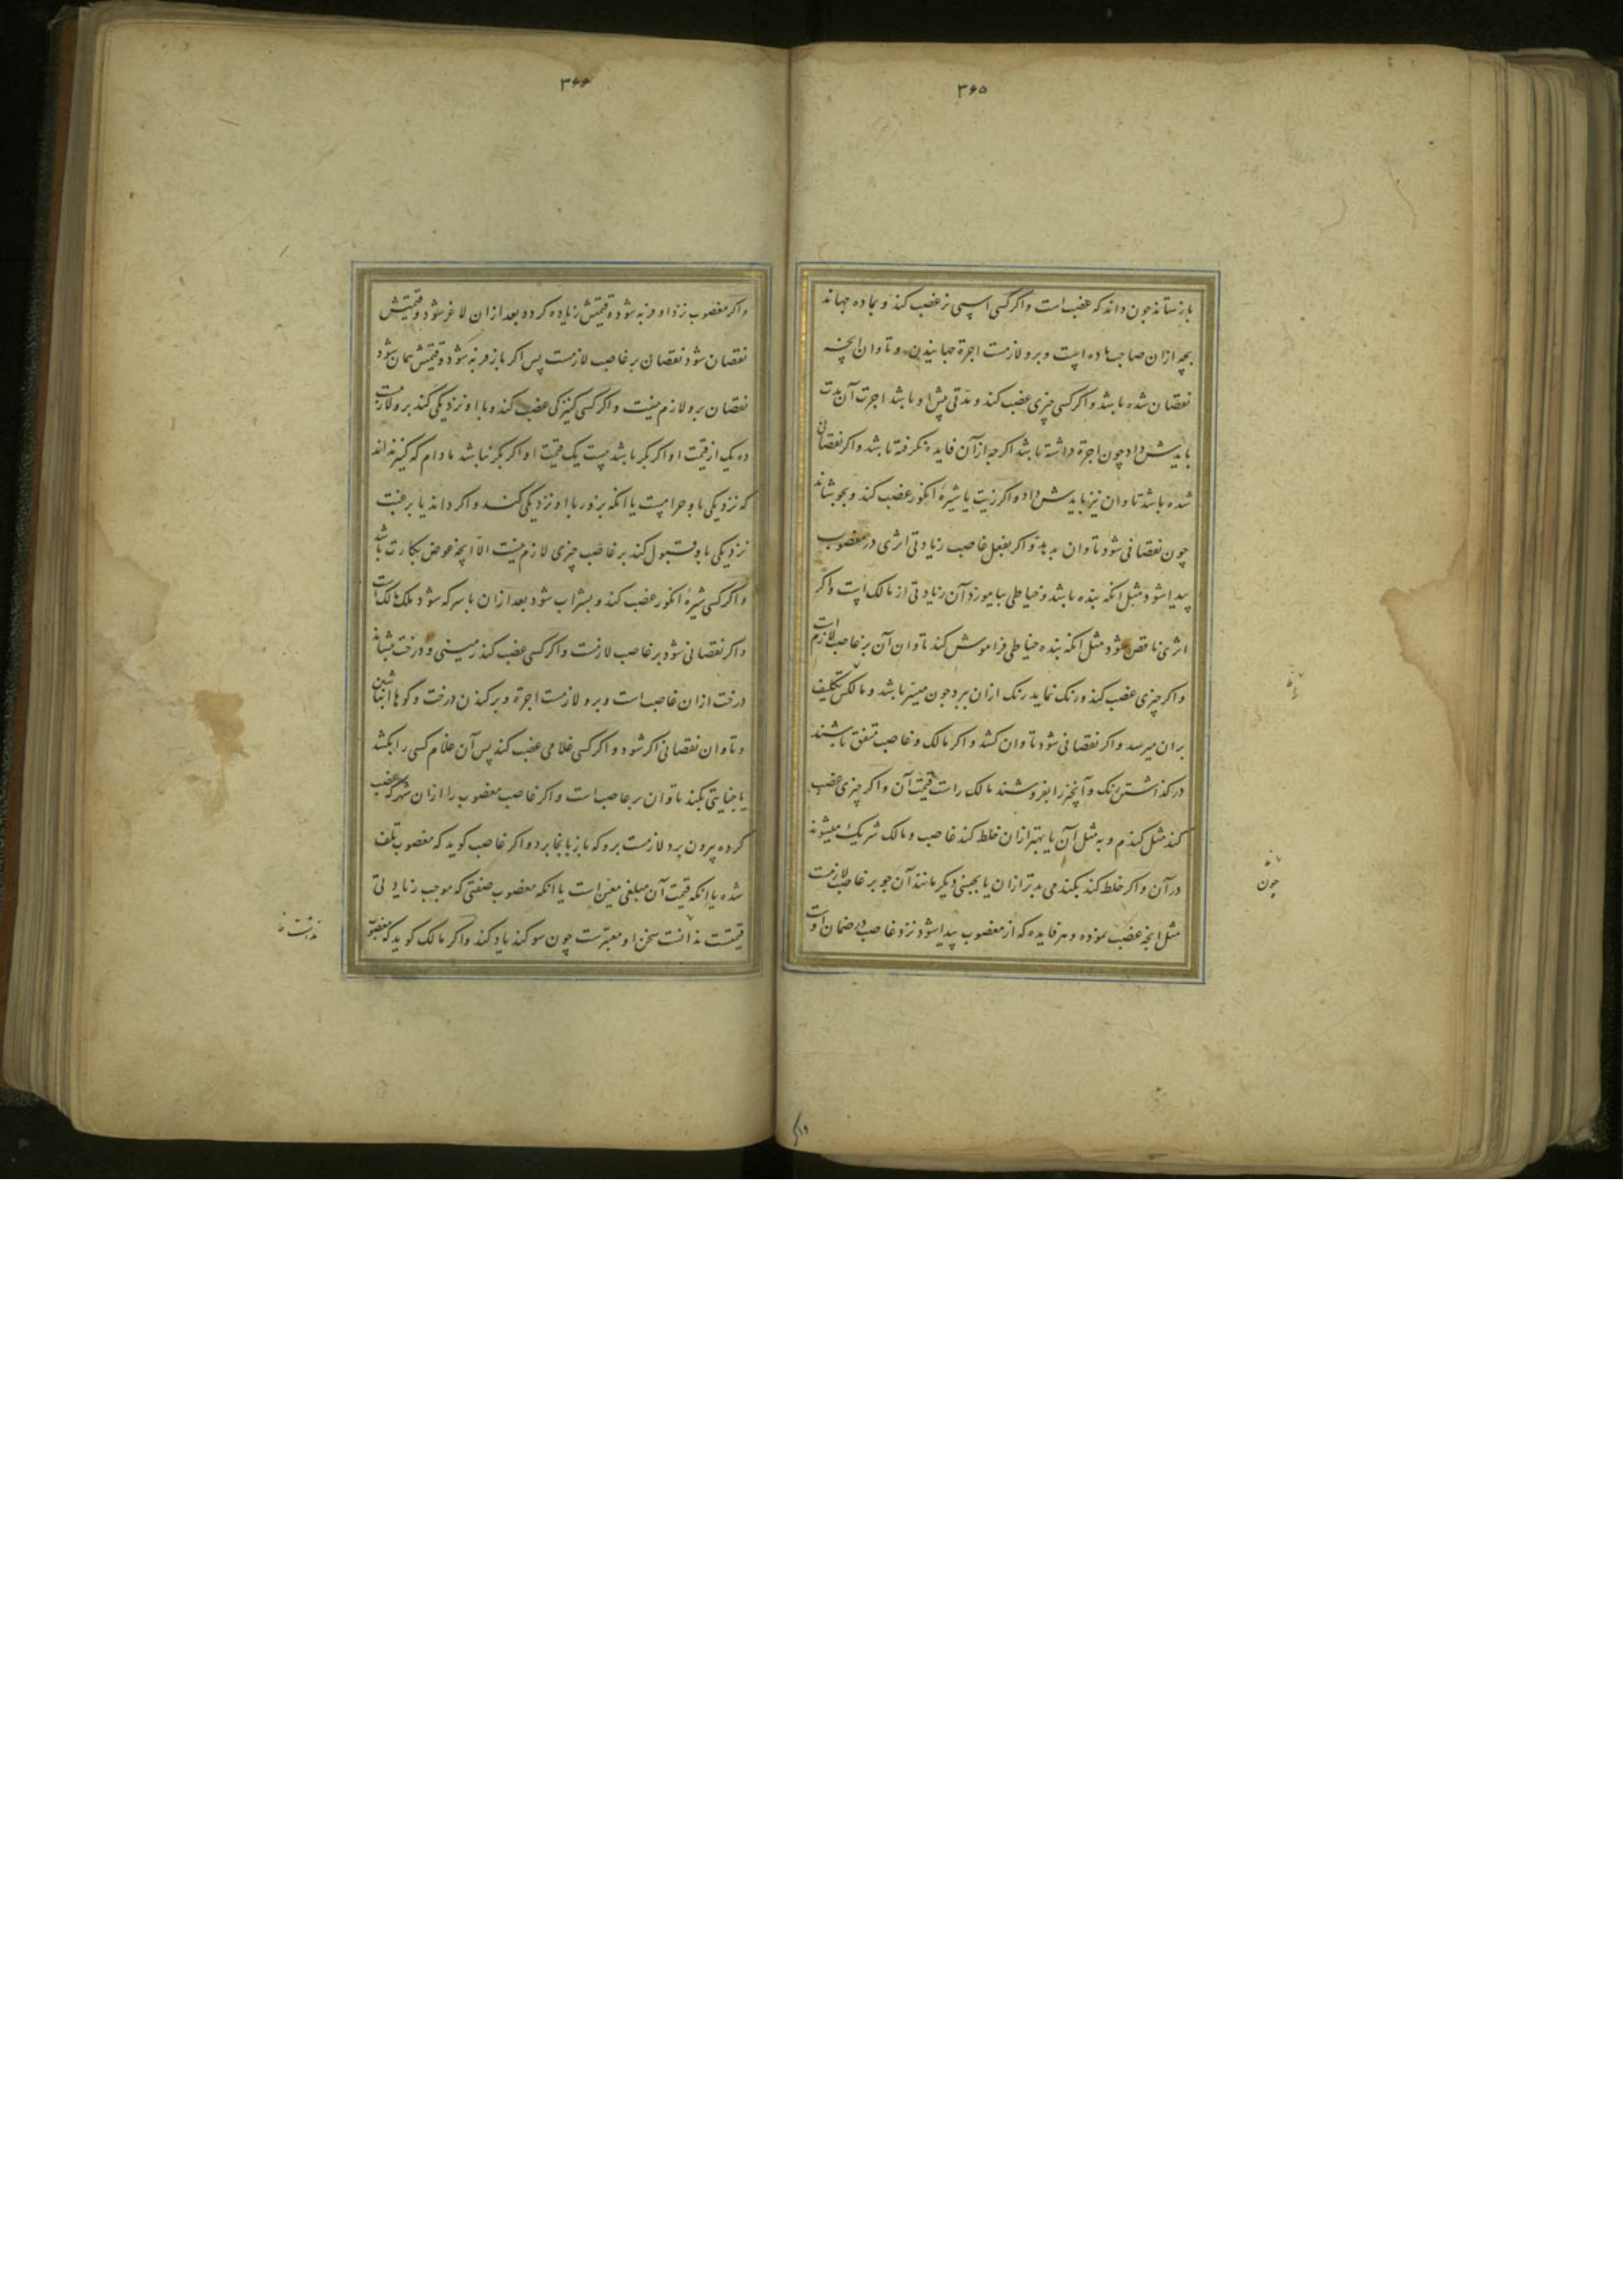 ۳۶۵
باز ستاند جون داند که غصب است واکر کسی اسپی نر غصب کند و بماده جهاند
بچه ازان صاحب ماده است وبرو لازمست اجرة جهانیدن و تاوان انچه
نقصان شده باشد واکر کسی چیزی غصب کند و مدتی پیش او باشد اجرت آن مدت
بایدش داد چون اجرة داشته باشد اکرچه ازآن فایده نکرفته باشد واکر نقصانی
شده باشد تاوان نیز بایدش داد واکر زیت یا شیرۀ انکور غصب کند و بجوشاند
چون نقصانی شود تاوان بدهد واکر بفعل غاصب زیادتی اثری در مغصوب
پیدا شود مثل انکه بنده باشد و خیاطی بیاموزد آن زیادتی از مالک است واکر
اثری ناقص شود مثل انکه بنده خیاطی فراموش کند تاوان آن بر غاصب لازم است
واکر چیزی غصب کند ورنک نماید رنک ازان ببرد جون میسر باشد و مالکش تکلیف
بران میرسد واکر نقصانی شود تاوان کشد و اکر مالک و غاصب متفق باشند
در کذاشتن رنک و آنچیز را بفروشند مالک راست قیمت آن واکر چیزی غصب
کند مثل کندم و به مثل آن یا بهتر ازان خلط کند غاصب و مالک شریک میشوند
درآن واکر خلط کند بکندمی بدتر ازان یا بجنسی دیکر مانند آن جو بر غاصب لازمست
مثل انچه غصب نموده و هر فایده که از مغصوب پیدا شود نزد غاصب در ضمان اوست
را
جون
۳۶۶
واکر مغصوب نزد او فربه شود وقیمتش زیاده کردد وبعد ازان لاغر شود وقیمتش
نقصان شود نقصان بر غاصب لازمست پس اکر باز فربه شود وقیمتش همان شود
نقصان برو لازم نیست واکر کسی کنیزکی غصب کند وبا او نزدیکی کند برو لازمست
ده یک از قیمت او اکر بکر باشد بیست یک قیمت او اکر بکر نباشد مادام که کنیز نداند
که نزدیکی باو حرامست یا انکه بزور با او نزدیکی کند واکر داند یا برغبت
نزدیکی باو قبول کند بر غاصب چیزی لازم نیست الا انچه عوض بکارت باشد
واکر کسی شیرۀ انکور غصب کند و بشراب شود بعد ازان با سرکه شود ملک مالکست
واکر نقصانی شود بر غاصب لازمست واکر کسی غصب کند زمینی و درخت نشاند
درخت ازان غاصب است وبرو لازمست اجرة وبرکندن درخت وکوها انباشتن
وتاوان نقصانی اکر شود واکر کسی غلامی غصب کند پس آن غلام کسی را بکشد
یا جنایتی بکند تاوان بر غاصب است واکر غاصب مغصوب را ازان شهر که غصب
کرده بیرون برد لازمست برو که باز بانجا برد واکر غاصب کوید که مغصوب تلف
شده یا انکه قیمت آن مبلغی معین است یا انکه مغصوب صفتی که موجب زیادتی
قیمتست نداشت سخن او معتبرست چون سوکند یاد کند واکر مالک کوید که مغصوب
نداشت